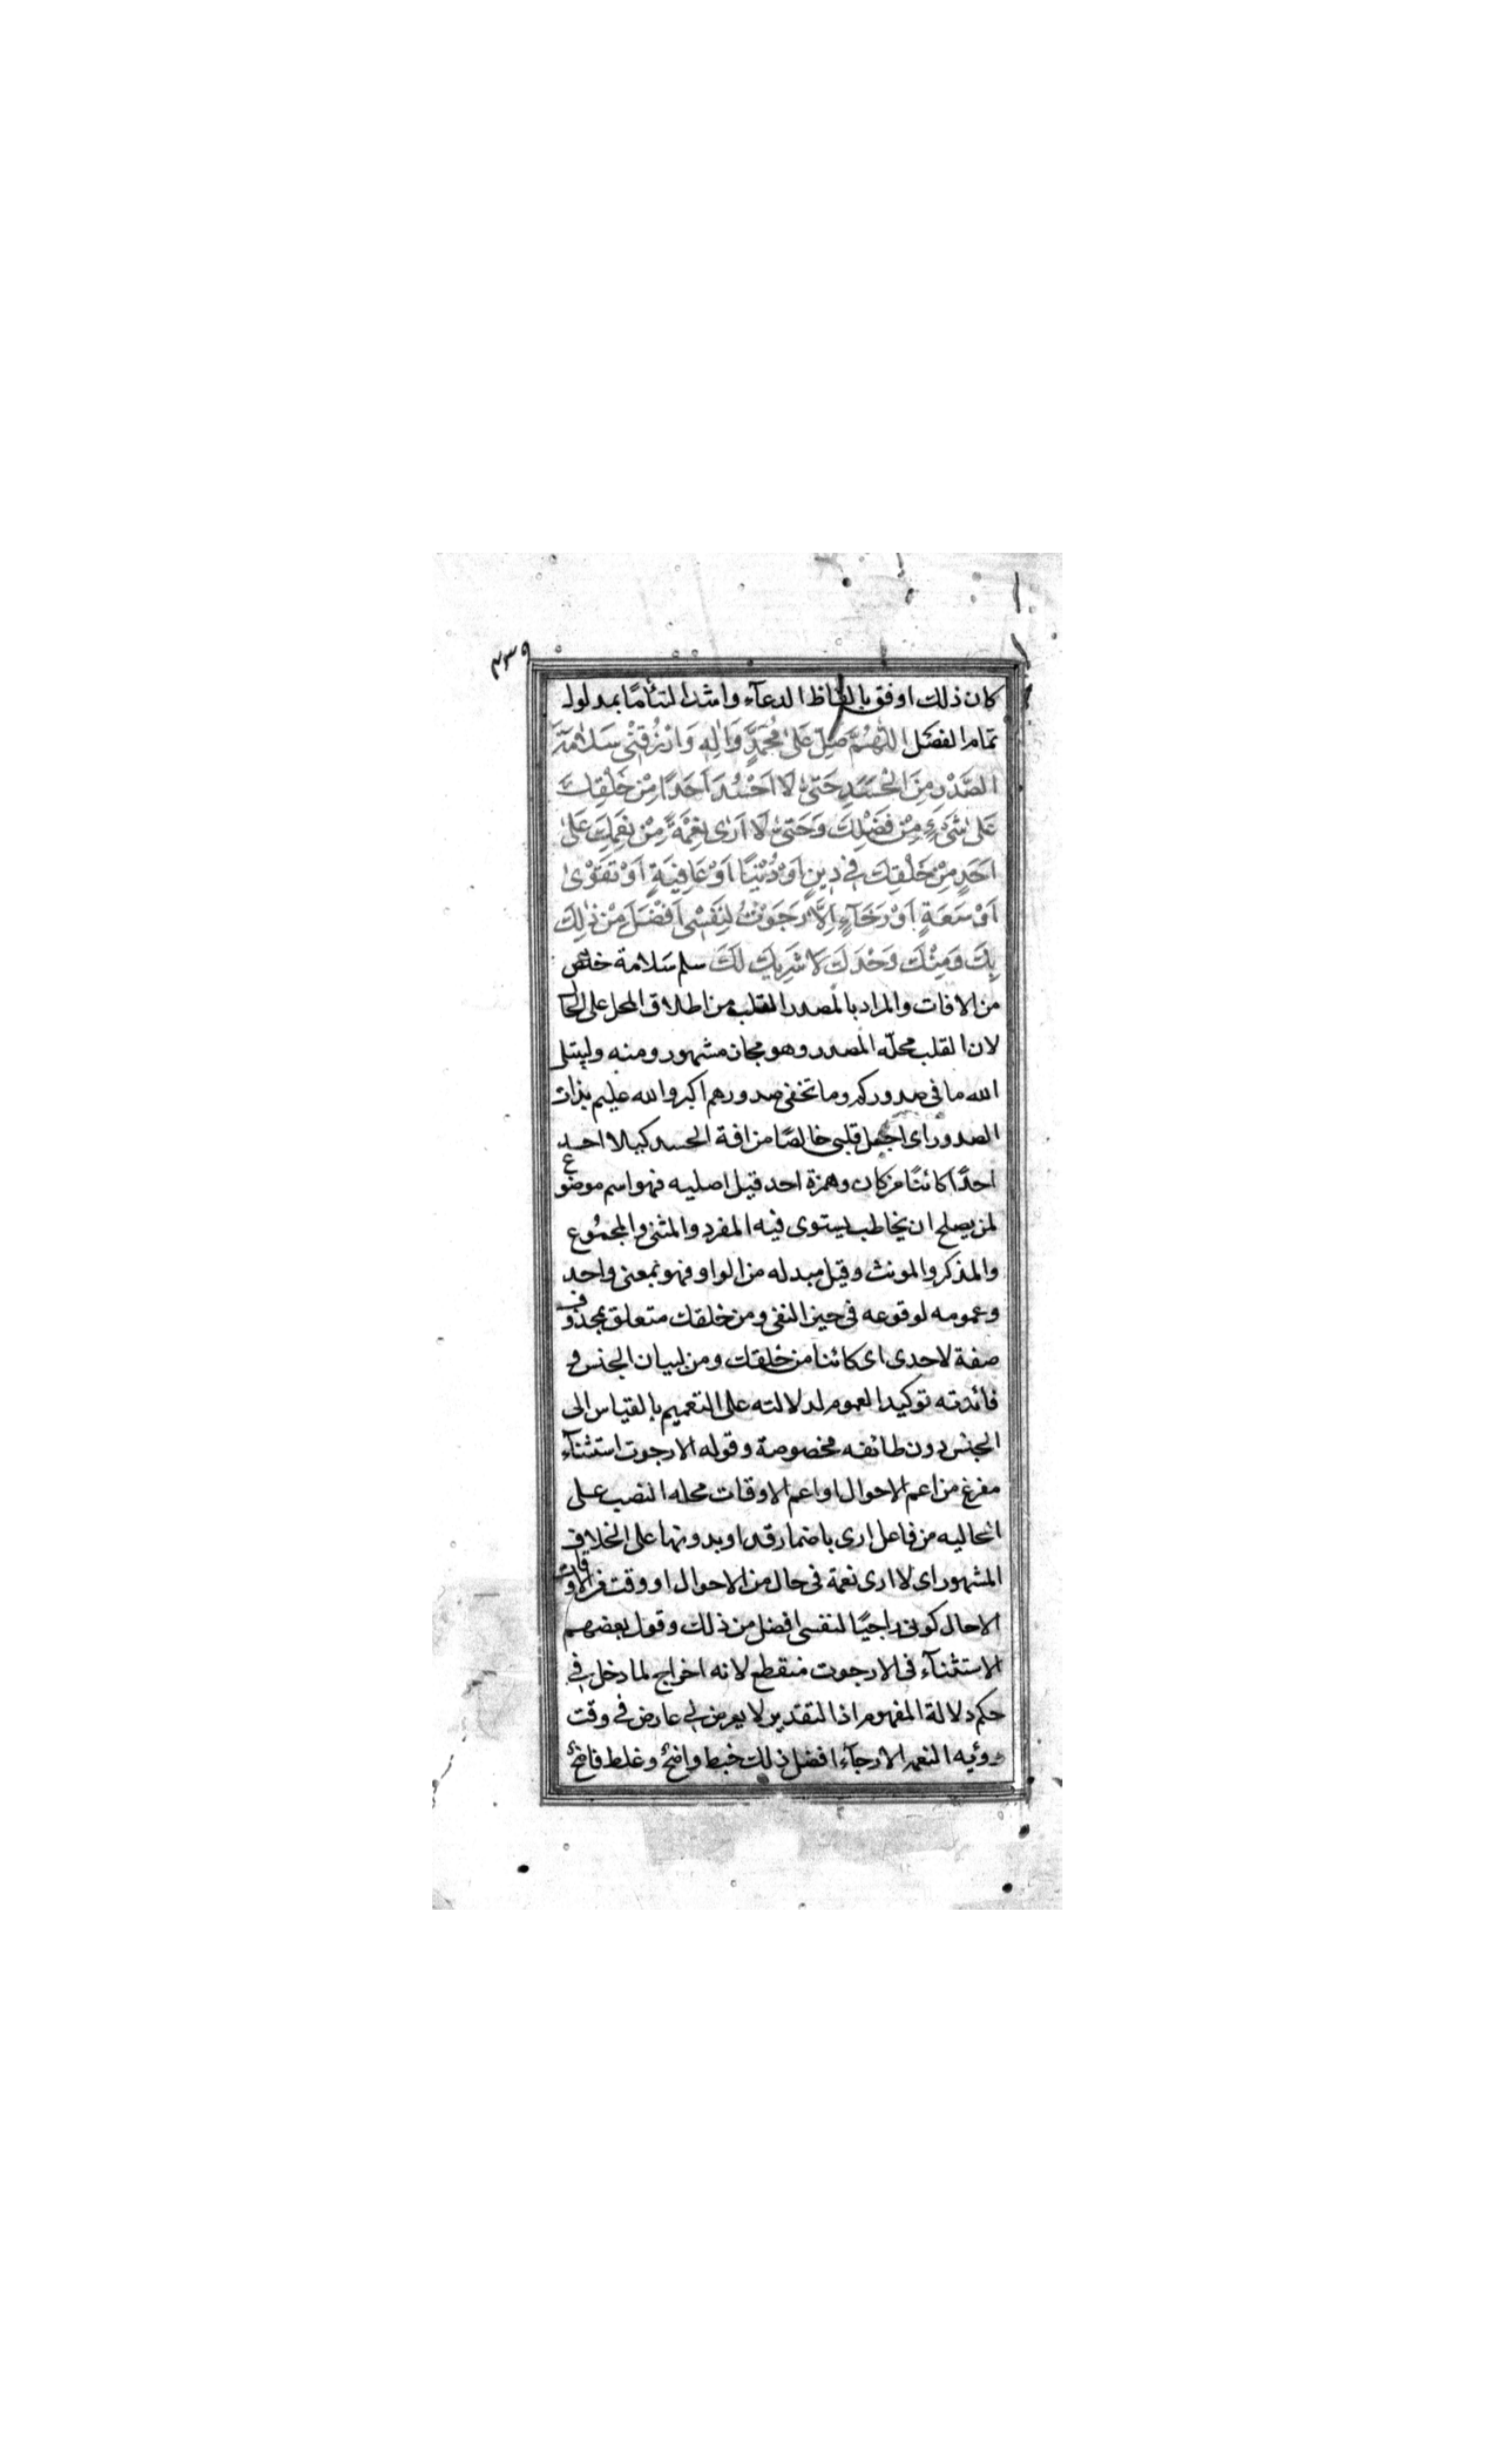 ٣٣٩
كان ذلك اوفق بالفاظ الدعآء واشد التئامًا بمدلوله
تمام الفصَل اللّٰهُمَّ صَلِّ عَلىٰ مُحَمَّدٍ وَاٰلِهٖ وَارْزُقْنِى سَلَامَةَ
الصَّدْرِ مِنَ الْحَسَدِ حَتىّٰ لَا اَحْسُدَ اَحَدًا مِنْ خَلْقِكَ
عَلىٰ شَىْءٍ مِنْ فَضْلِكَ وَحَتىّٰ لَا اَرٰى نِعْمَةً مِنْ نِعَمِكَ عَلىٰ
اَحَدٍ مِنْ خَلْقِكَ فى دِينٍ اَوْ دُنْيَا اَوْ عَافِيَةٍ اَوْ تَقْوٰى
اَوْ سَعَةٍ اَوْ رَخَآءٍ اِلَّا رَجَوْتُ لِنَفْسِى اَفْضَلَ مِنْ ذٰلِكَ
بِكَ وَمِنْكَ وَحْدَكَ لَا شَرِيكَ لَكَ سلم سَلامة خلص
من الافات والمراد بالصدر القلب من اطلاق المحل على الحال
لان القلب محلّه الصدر وهو مجاز مشهور ومنه وليبتلى
الله ما فى صدوركم وما تخفى صدورهم اكبر والله عليم بذات
الصدور اى اجعل قلبى خالصًا من افة الحسد كيلا احسد
احدًا كائنًا من كان وهمزة احد قيل اصليه فهو اسم موضوع
لمن يصلح ان يخاطب يستوى فيه المفرد والمثنى والمجمُوع
والمذكر والمونث وقيل مبدله من الواو فهو بمعنى واحد
وعمومه لوقوعه فى حيز النفى ومن خلقك متعلق بمحذوف
صفة لاحدى اى كائنا من خلقك ومن لبيان الجنس و
فائدته توكيد العموم لدلالته على التعميم بالقياس الى
الجنس دون طائفه مخصوصة وقوله الا رجوت استثنآء
مفرغ من اعم الاحوال او اعم الاوقات محله النصب على
الحاليه من فاعل ارى باضمار قد او بدونها على الخلاف
المشهور اى لا ارى نعمة فى حال من الاحوال او وقت من الاوقات
الا حال كونى راجيًا لنفسى افضل من ذلك وقول بعضهم
الاستثنآء فى الا رجوت منقطع لانه اخراج لما دخل فى
حكم دلالة المفهوم اذ التقدير لا يعرض لى عارض فى وقت
رؤيه النعم الا رجآء افضل ذلك خبط واضح وغلط فاضح